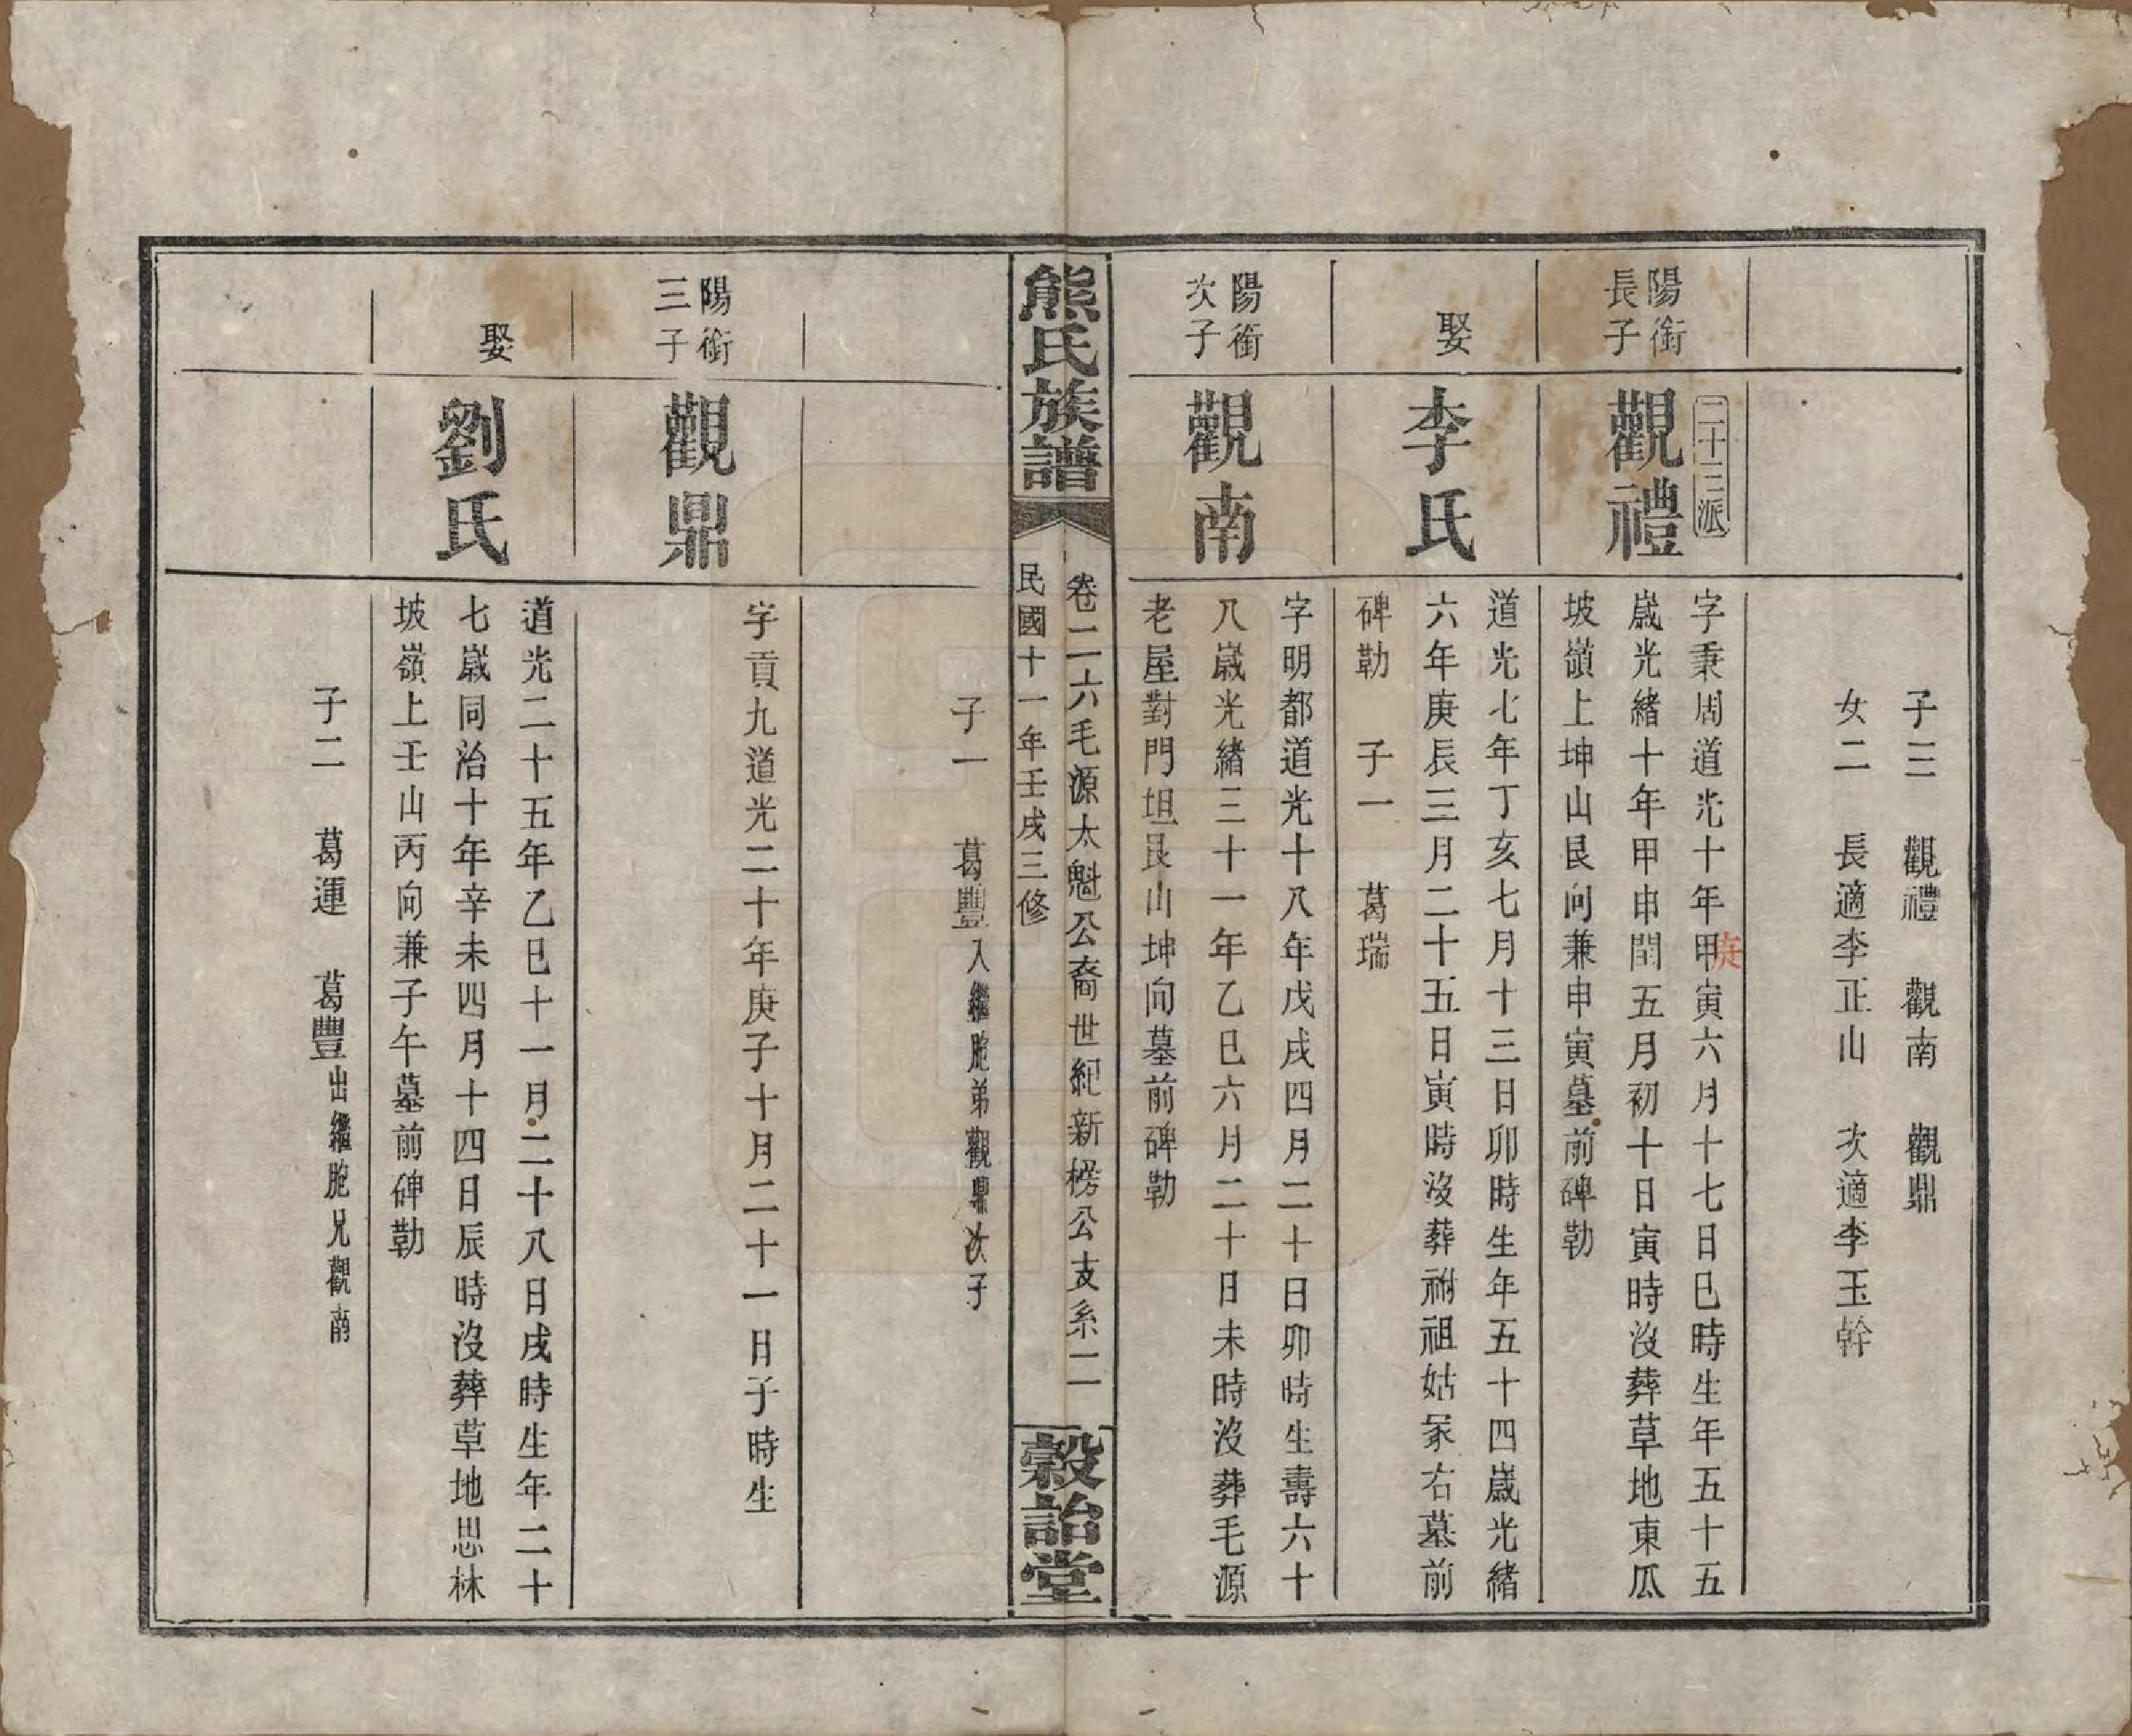 子三　觀禮　觀南　觀鼎
女二　長適李正山　次適李玉幹
二十三派
陽銜
長子
觀禮
字秉周道光十年甲寅六月十七日巳時生年五十五
庚
歲光緒十年甲申閏五月初十日寅時沒葬草地東瓜
坡嶺上坤山艮向兼申寅墓前碑勒
娶
李氏
道光七年丁亥七月十三日卯時生年五十四歲光緒
六年庚辰三月二十五日寅時沒葬祔祖姑冢右墓前
碑勒　子一　葛瑞
陽銜
次子
觀南
字明都道光十八年戊戌四月二十日卯時生壽六十
八歲光緒三十一年乙巳六月二十日未時沒葬毛源
老屋對門坦艮山坤向墓前碑勒
熊氏族譜
卷二六毛源太魁公裔世紀新楞公支系二
民國十一年壬戌三修
穀詒堂
子一　葛豐入繼胞弟觀鼎次子
陽銜
三子
觀鼎
字貢九道光二十年庚子十月二十一日子時生
娶
劉氏
道光二十五年乙巳十一月二十八日戌時生年二十
七歲同治十年辛未四月十四日辰時沒葬草地思林
坡嶺上壬山丙向兼子午墓前碑勒
子二　葛運　葛豐出繼胞兄觀南